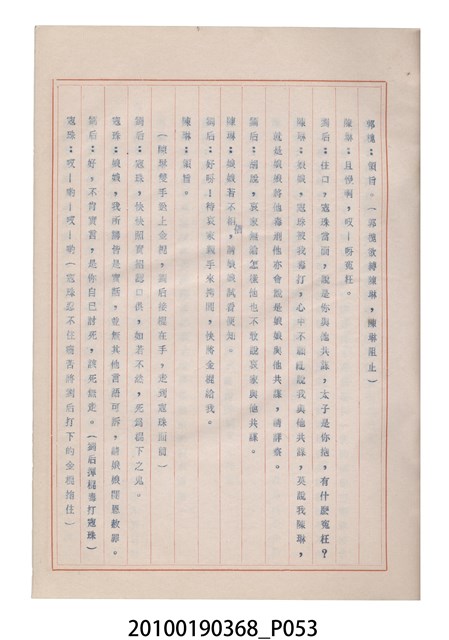 郭槐：領旨。（郭槐欲綁陳琳，陳琳阻止）
陳琳：且慢啊，哎－呀冤枉。
劉后：住口，寇珠當面，說是你與他共謀，太子是你抱，有什麼冤枉？
陳琳：娘娘，寇珠被我毒打，心中不願亂說我與他共謀，莫說我陳琳，
就是娘娘將他毒刑他亦會說是娘娘與他共謀，請詳察。
劉后：胡說，哀家無論怎樣他也不敢說哀家與他共謀。
陳琳：娘娘若不信，請娘娘試看便知。
劉后：好呀！待哀家親手來拷問，快將金棍給我。
陳琳：領旨。
（陳琳雙手獻上金棍，劉后接棍在手，走到寇珠面前）
劉后：寇珠，快快照實招認口供，如若不然，死為棍下之鬼。
寇珠：娘娘，我所講皆是實話，並無其他言語可訴，請娘娘開恩赦罪。
劉后：好，不肯實言，是你自己討死，該死賤婢。（劉后揮棍毒打寇珠）
寇珠：哎－喲－哎－喲（寇珠忍不住痛苦將劉后打下的金棍抱住）
20100190368_P053